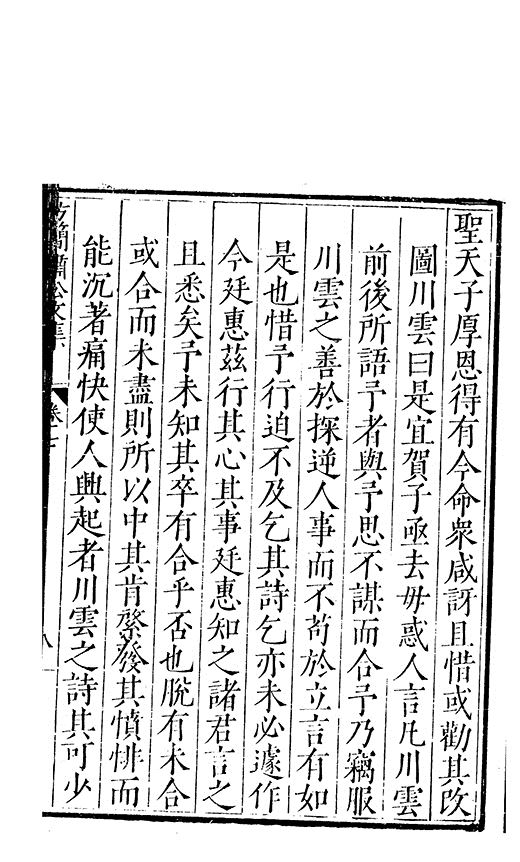 聖天子厚恩得有今命衆咸訝且惜或勸其改
圖川雲曰是宜賀子亟去毋惑人言凡川雲
前後所語予者與予思不謀而合予乃竊服
川雲之善於探逆人事而不苟於立言有如
是也惜予行迫不及乞其詩乞亦未必遽作
今廷惠茲行其心其事廷惠知之諸君言之
且悉矣予未知其卒有合乎否也脫有未合
或合而未盡則所以中其肯綮發其憤悱而
能沉著痛快使人興起者川雲之詩其可少
簡肅公文集
卷七
八